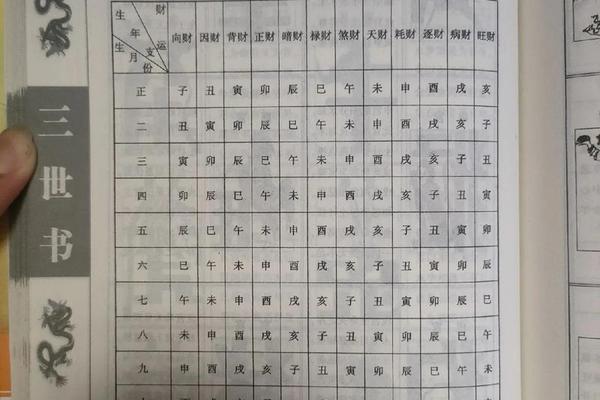 三世书
生年支 生月份 财运 向财 因财 背财 正财 暗财 禄财 煞财 天财 耗财 逐财 病财 旺财
正 子 丑 寅 卯 辰 巳 午 未 申 酉 戌 亥
二 丑 寅 卯 辰 巳 午 未 申 酉 戌 亥 子
三 寅 卯 辰 巳 午 未 申 酉 戌 亥 子 丑
四 卯 辰 巳 午 未 申 酉 戌 亥 子 丑 寅
五 辰 巳 午 未 申 酉 戌 亥 子 丑 寅 卯
六 巳 午 未 申 酉 戌 亥 子 丑 寅 卯 辰
七 午 未 申 酉 戌 亥 子 丑 寅 卯 辰 巳
八 未 申 酉 戌 亥 子 丑 寅 卯 辰 巳 午
九 申 酉 戌 亥 子 丑 寅 卯 辰 巳 午 未